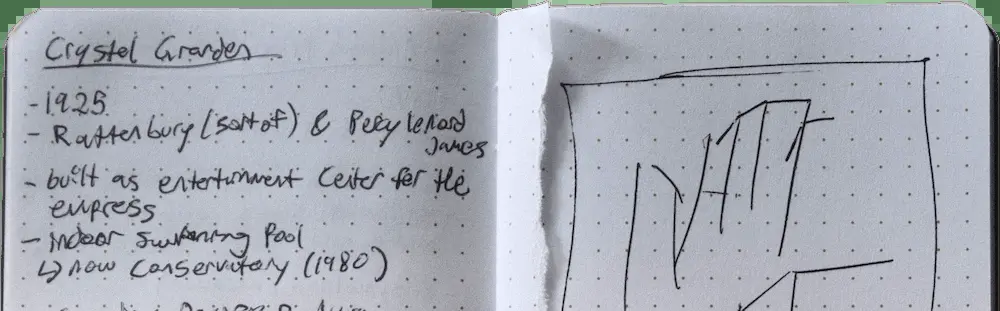 Crystel Grarden
- 1925
- Rattenbury (sort of) & Percy lenard
James
- built as entertunment Center for the
empress
- Indoor Swimming Pool
↳ now Conservatory (1980)